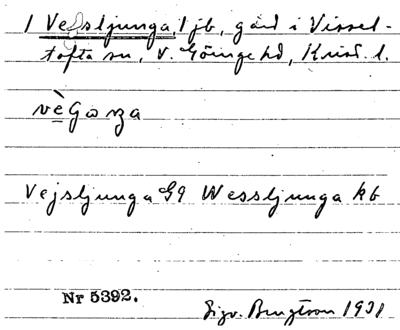 1 Vejsljunga, 1 jb, gård i Vissel-
tofta sn, V. Göinge hd, Krist. l.
Vejsljunga G9 Wessljunga kb
Nr 5392.
Sigv. Bengtson 1931